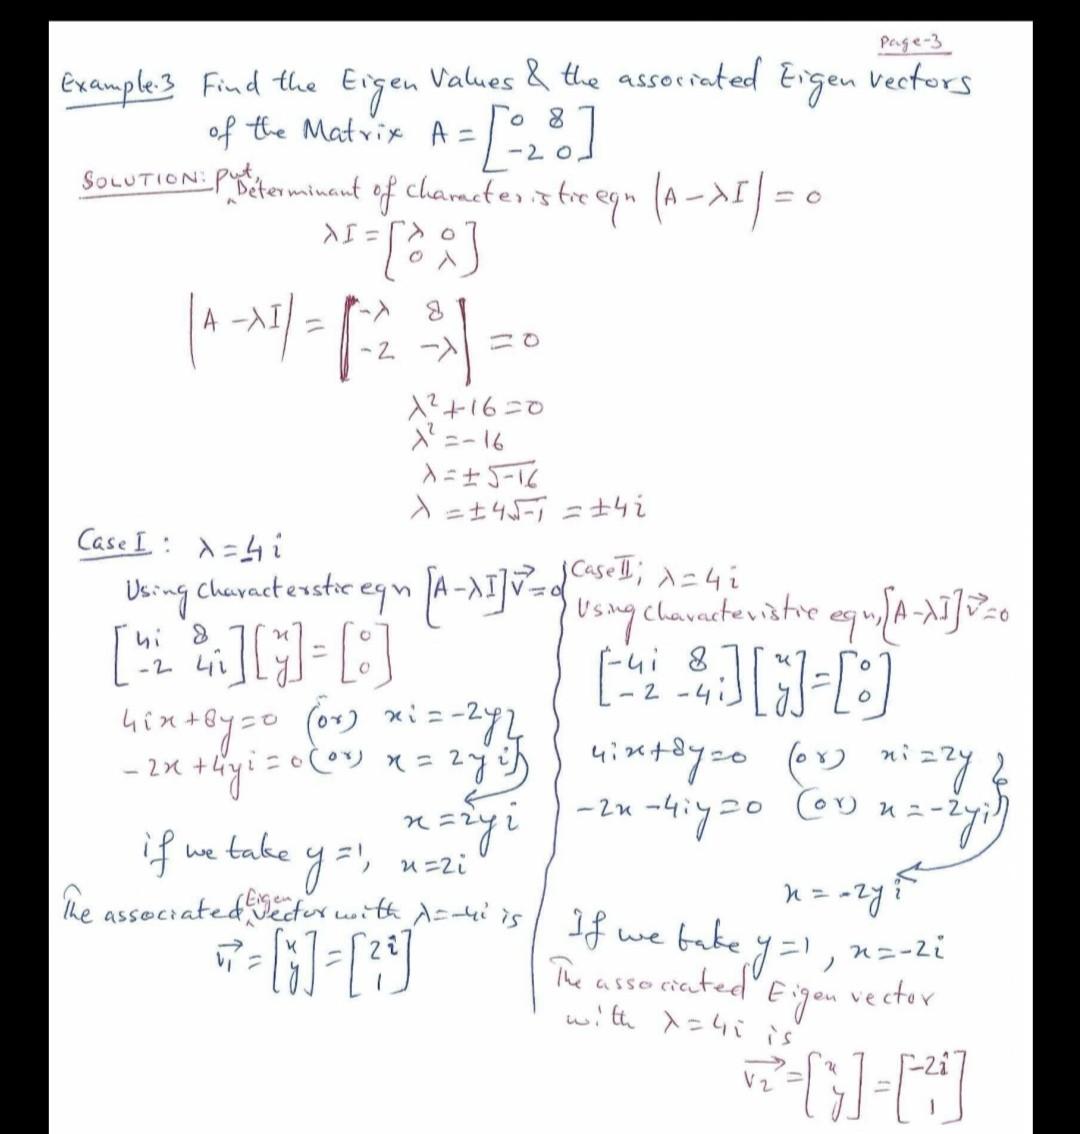 Page-3
Example.3 Find the Eigen Values & the associated Eigen vectors
of the Matrix A = [0 8
-2 0]
SOLUTION: Put, Determinant of characteristic eqn |A-λI| = 0
λI = [λ 0
0 λ]
|A-λI| = |-λ 8
-2 -λ| = 0
λ²+16=0
λ²=-16
λ=±√-16
λ=±4√-1 = ±4i
Case I: λ=-4i
Using Characterstic eqn [A-λI]v⃗=0
[4i 8
-2 4i] [x
y] = [0
0]
4ix+8y=0 (or) xi=-2y
-2x+4yi=0 (or) x=2yi
x=2yi
if we take y=1, x=2i
The associated Eigen Vector with λ=-4i is
v⃗₁ = [x
y] = [2i
1]
Case II; λ=4i
Using characteristic eqn, [A-λI]v⃗=0
[-4i 8
-2 -4i] [x
y] = [0
0]
4ix+8y=0 (or) xi=2y
-2x-4iy=0 (or) x=-2yi
x=-2yi
If we take y=1, x=-2i
The associated Eigen vector
with λ=4i is
v⃗₂ = [x
y] = [-2i
1]